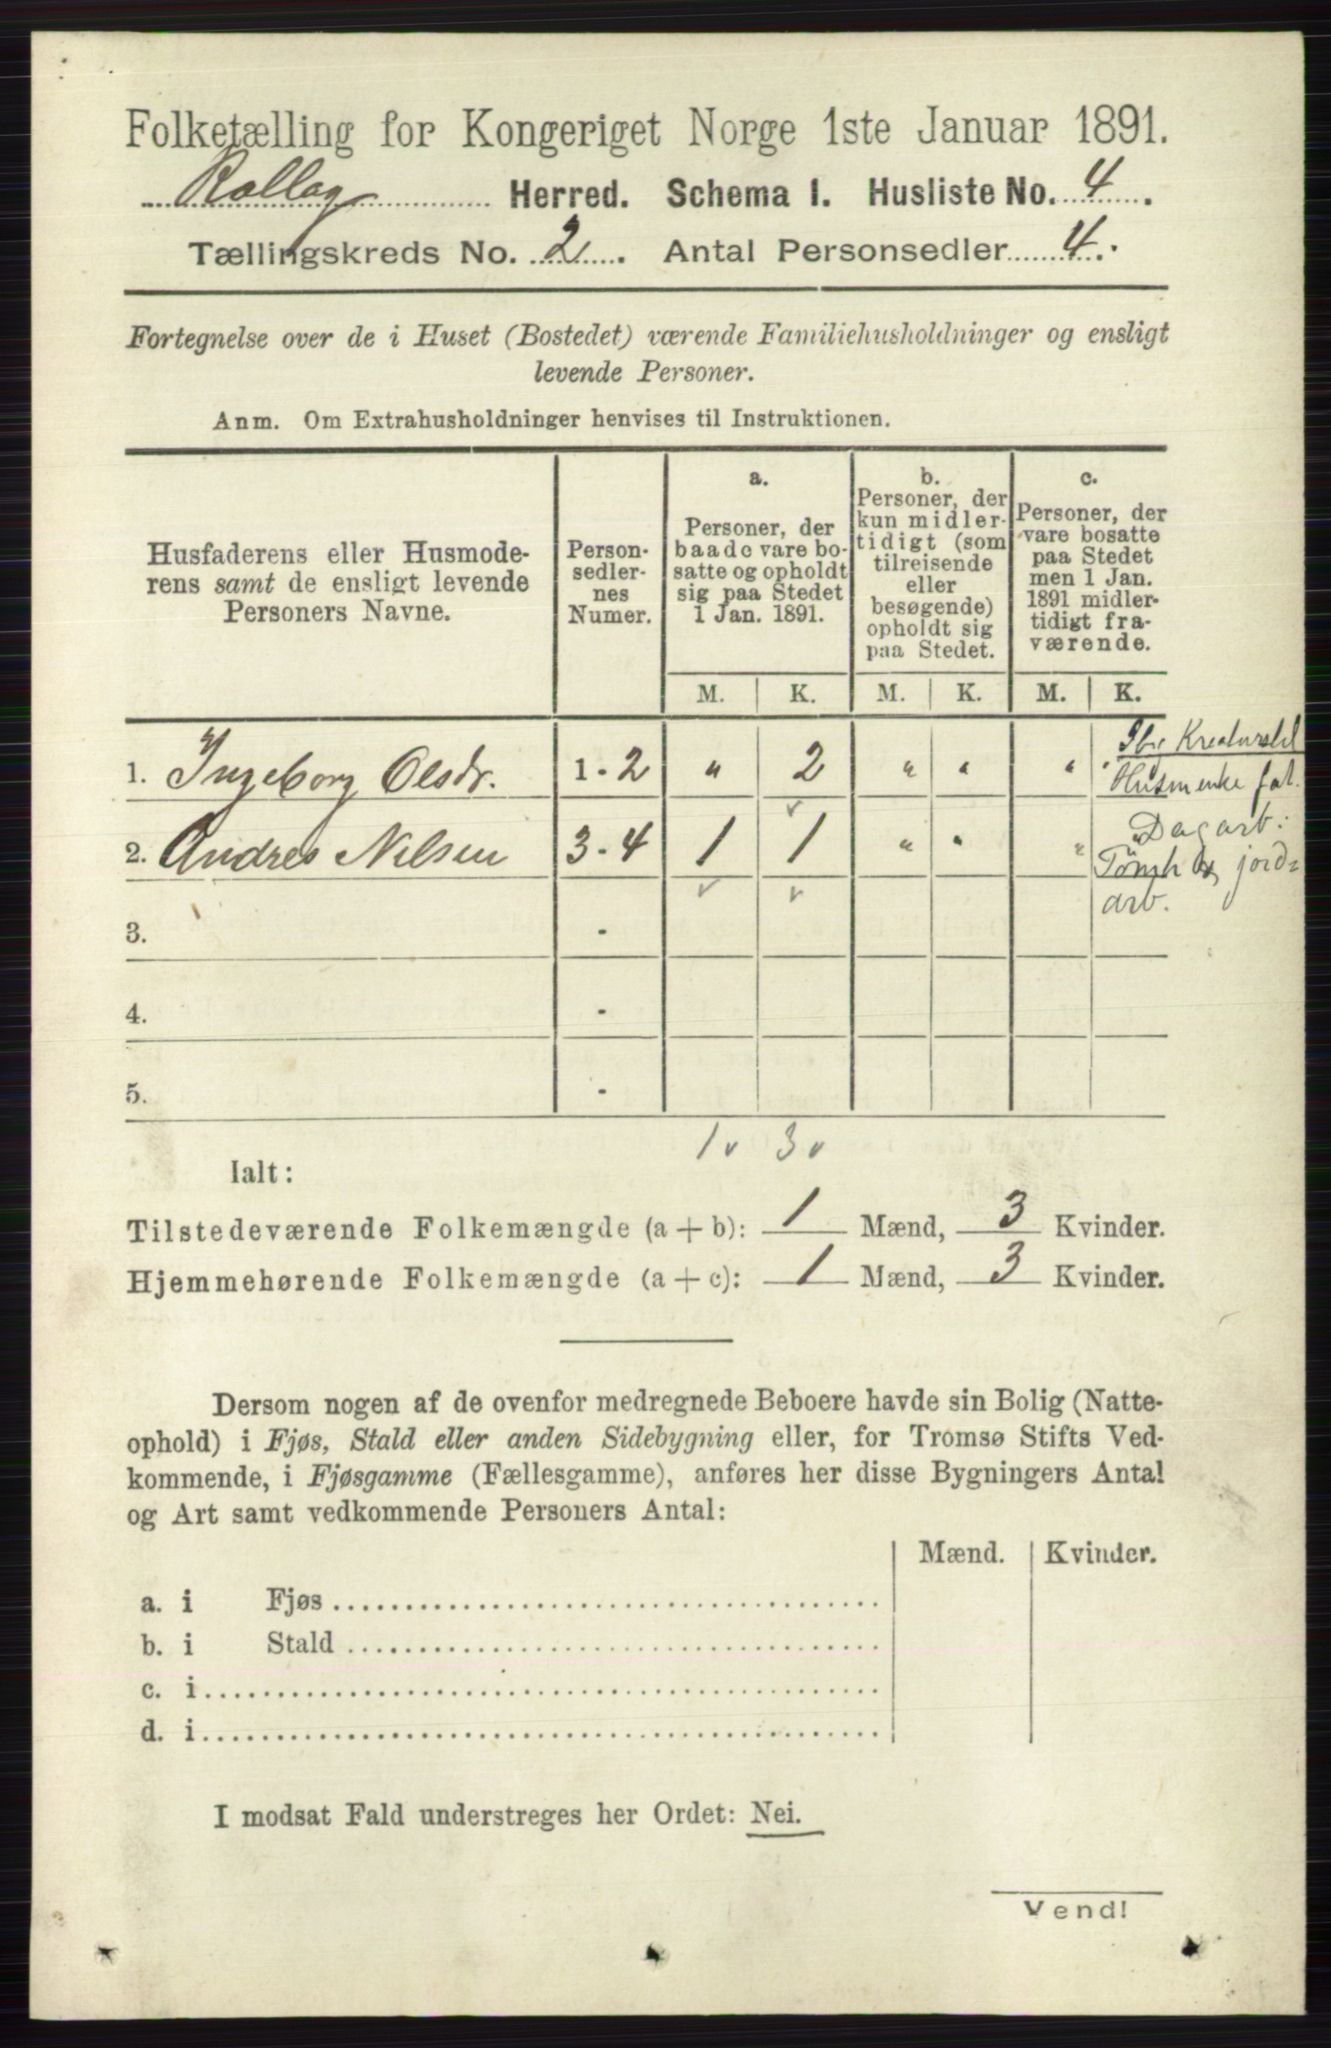 Folketælling for Kongeriget Norge 1ste Januar 1891.
Rollag Herred. Schema I. Husliste No. 4.
Tællingskreds No. 2. Antal Personsedler 4.
Fortegnelse over de i Huset (Bostedet) værende Familiehusholdninger og ensligt
levende Personer.
Anm. Om Extrahusholdninger henvises til Instruktionen.
Husfaderens eller Husmode-
rens samt de ensligt levende
Personers Navne.
Person-
sedler-
nes
Numer.
a.
Personer, der
baade vare bo-
satte og opholdt
sig paa Stedet
1 Jan. 1891.
b.
Personer, der
kun midler-
tidigt (som
tilreisende
eller
besøgende)
opholdt sig
paa Stedet.
c.
Personer, der
vare bosatte
paa Stedet
men 1 Jan.
1891 midler-
tidigt fra-
værende.
M. K. M. K. M. K.
1. Ingeborg Olsdr. 1-2 " 2 " " "
Husmenke fat.
2. Andres Nilsen 3-4 1 1 " " " "
Dagarb:
jord=
arb.
3. -
4. -
5. -
1 v 3 v
Ialt:
Tilstedeværende Folkemængde (a + b): 1 Mænd, 3 Kvinder.
Hjemmehørende Folkemængde (a + c): 1 Mænd, 3 Kvinder.
Dersom nogen af de ovenfor medregnede Beboere havde sin Bolig (Natte-
ophold) i Fjøs, Stald eller anden Sidebygning eller, for Tromsø Stifts Ved-
kommende, i Fjøsgamme (Fællesgamme), anføres her disse Bygningers Antal
og Art samt vedkommende Personers Antal:
Mænd. Kvinder.
a. i Fjøs
b. i Stald
c. i
d. i
I modsat Fald understreges her Ordet: Nei.
Vend!